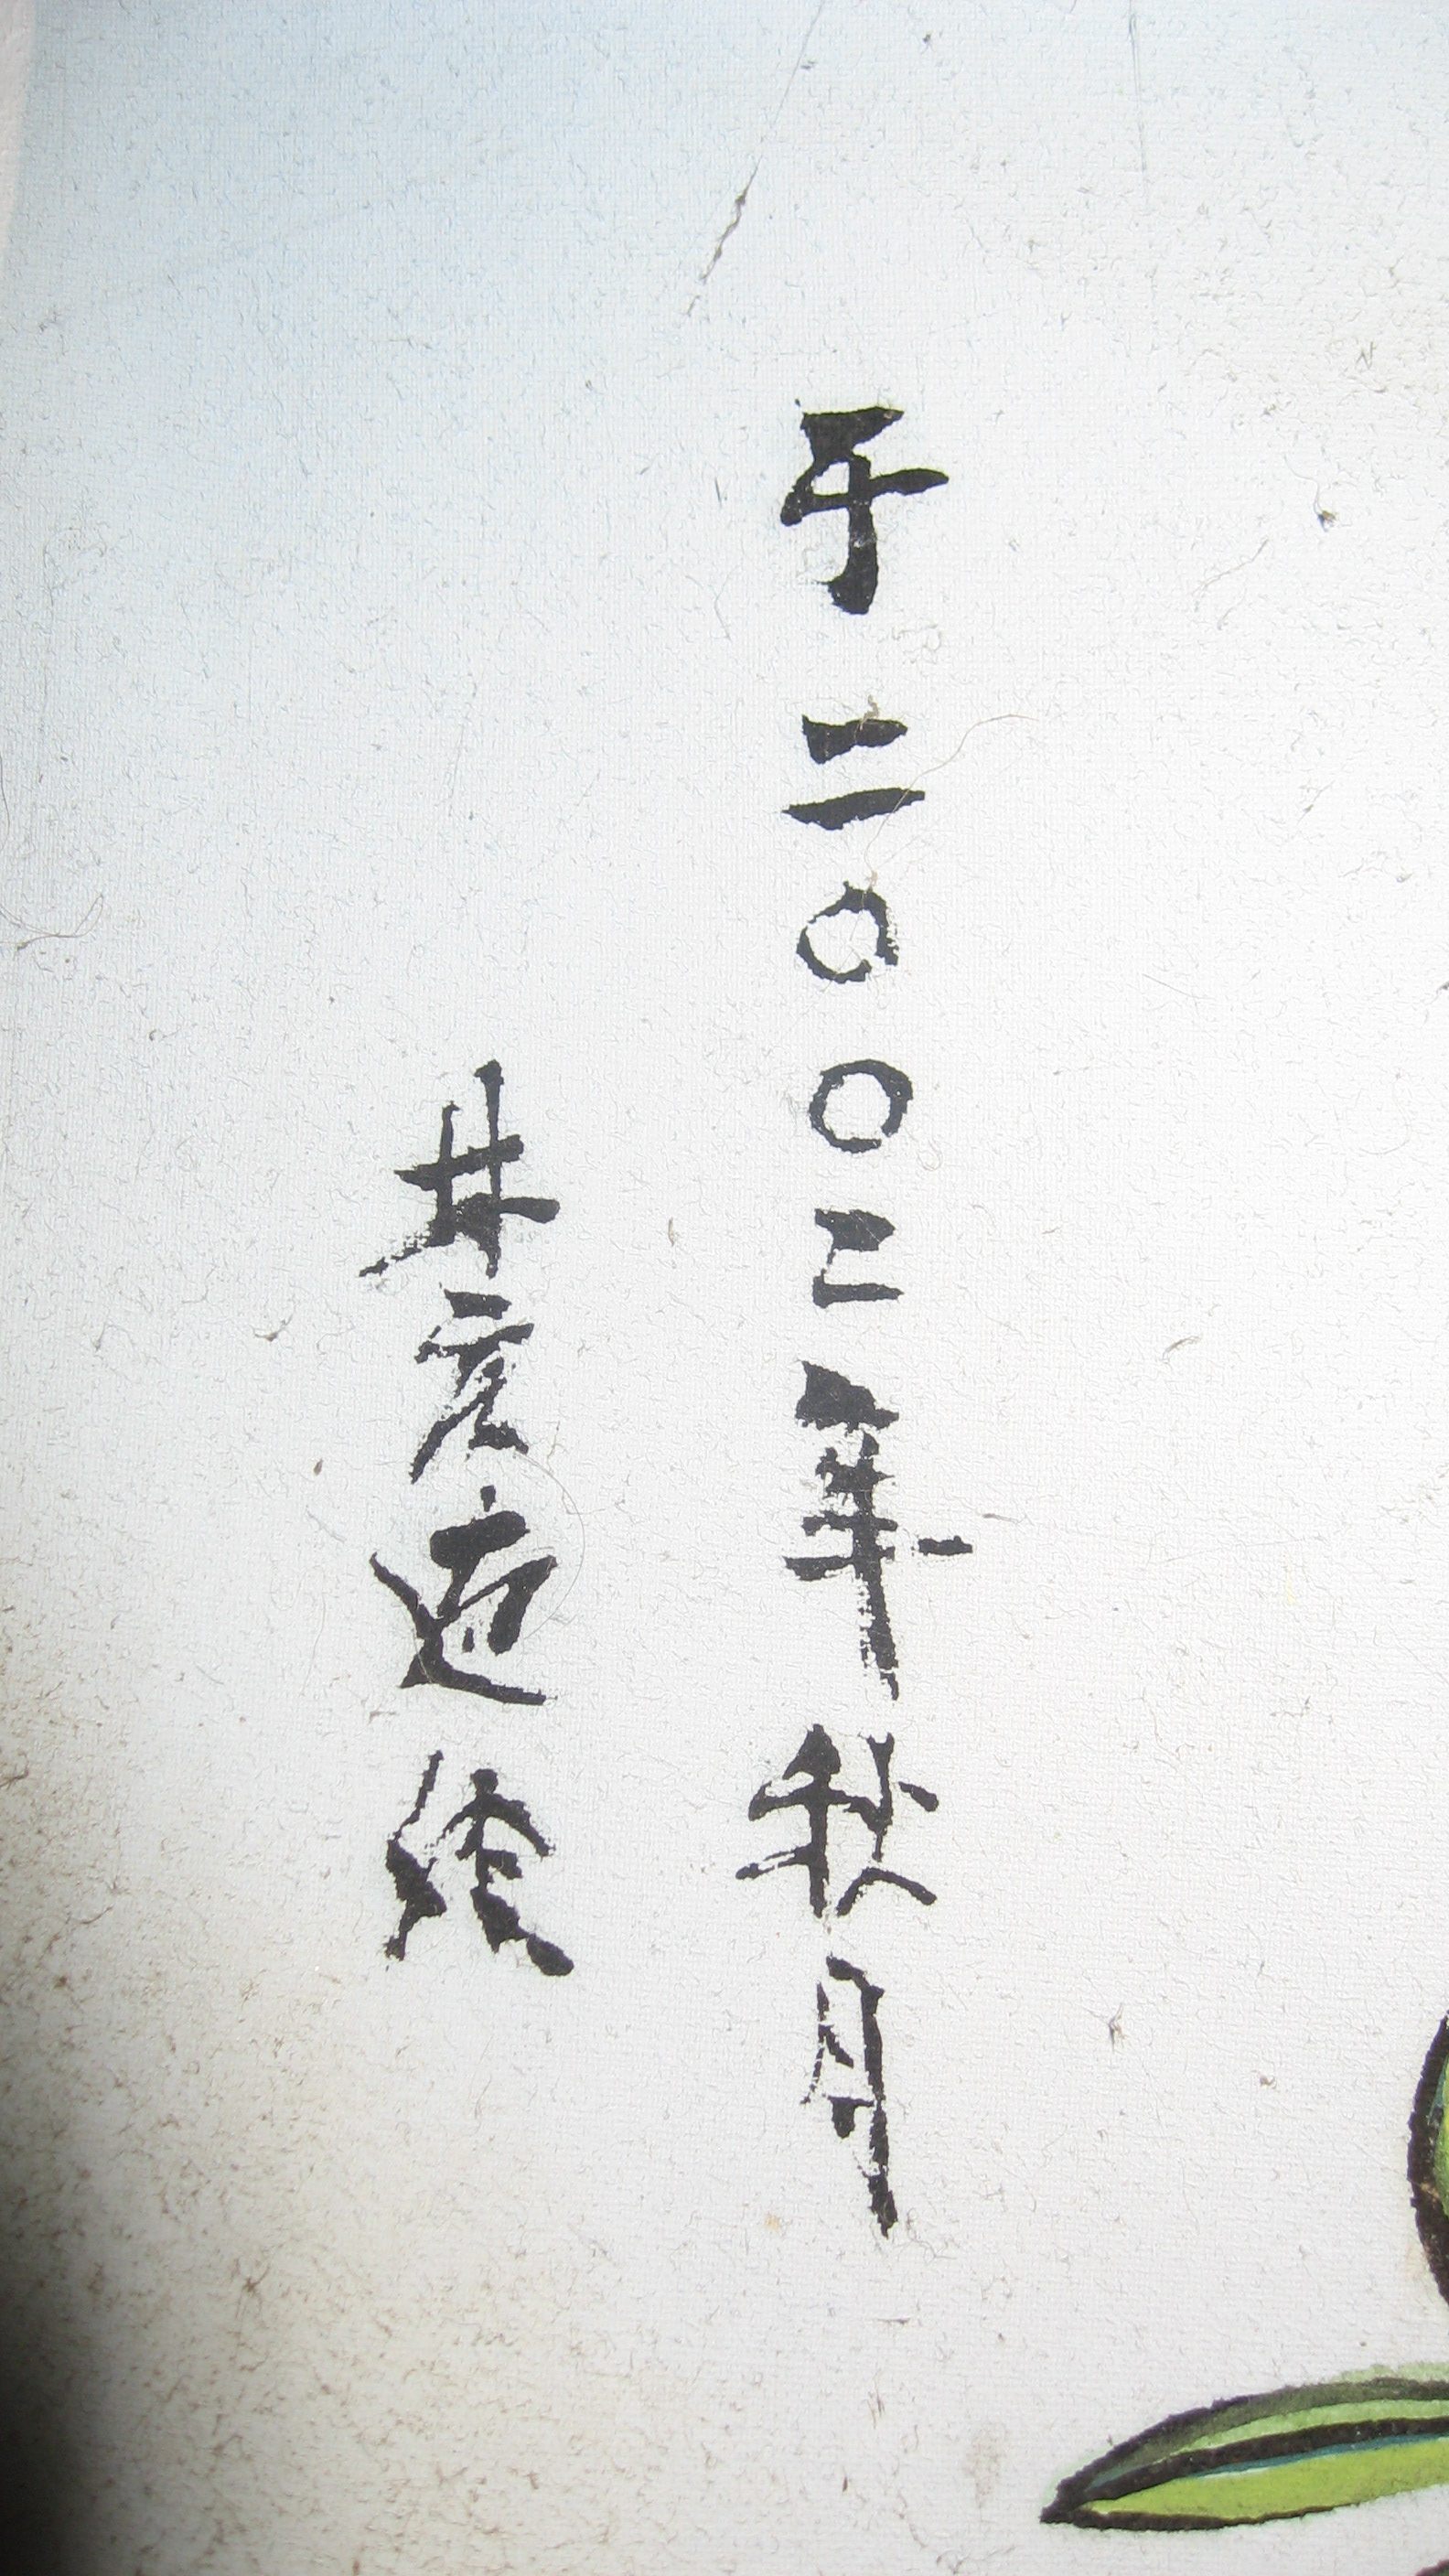 于二〇〇二年秋月
井亥迎绘